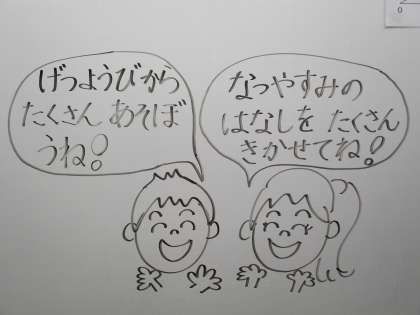 げつようびから
たくさん あそぼ
うね!
なつやすみの
はなしを たくさん
きかせてね!
0